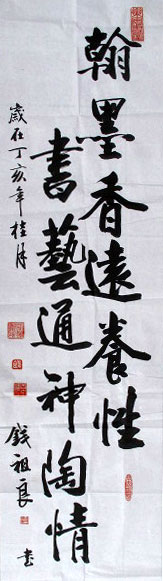 翰墨香遠養性
書藝通神陶情
歲在丁亥年桂月
錢祖良
書